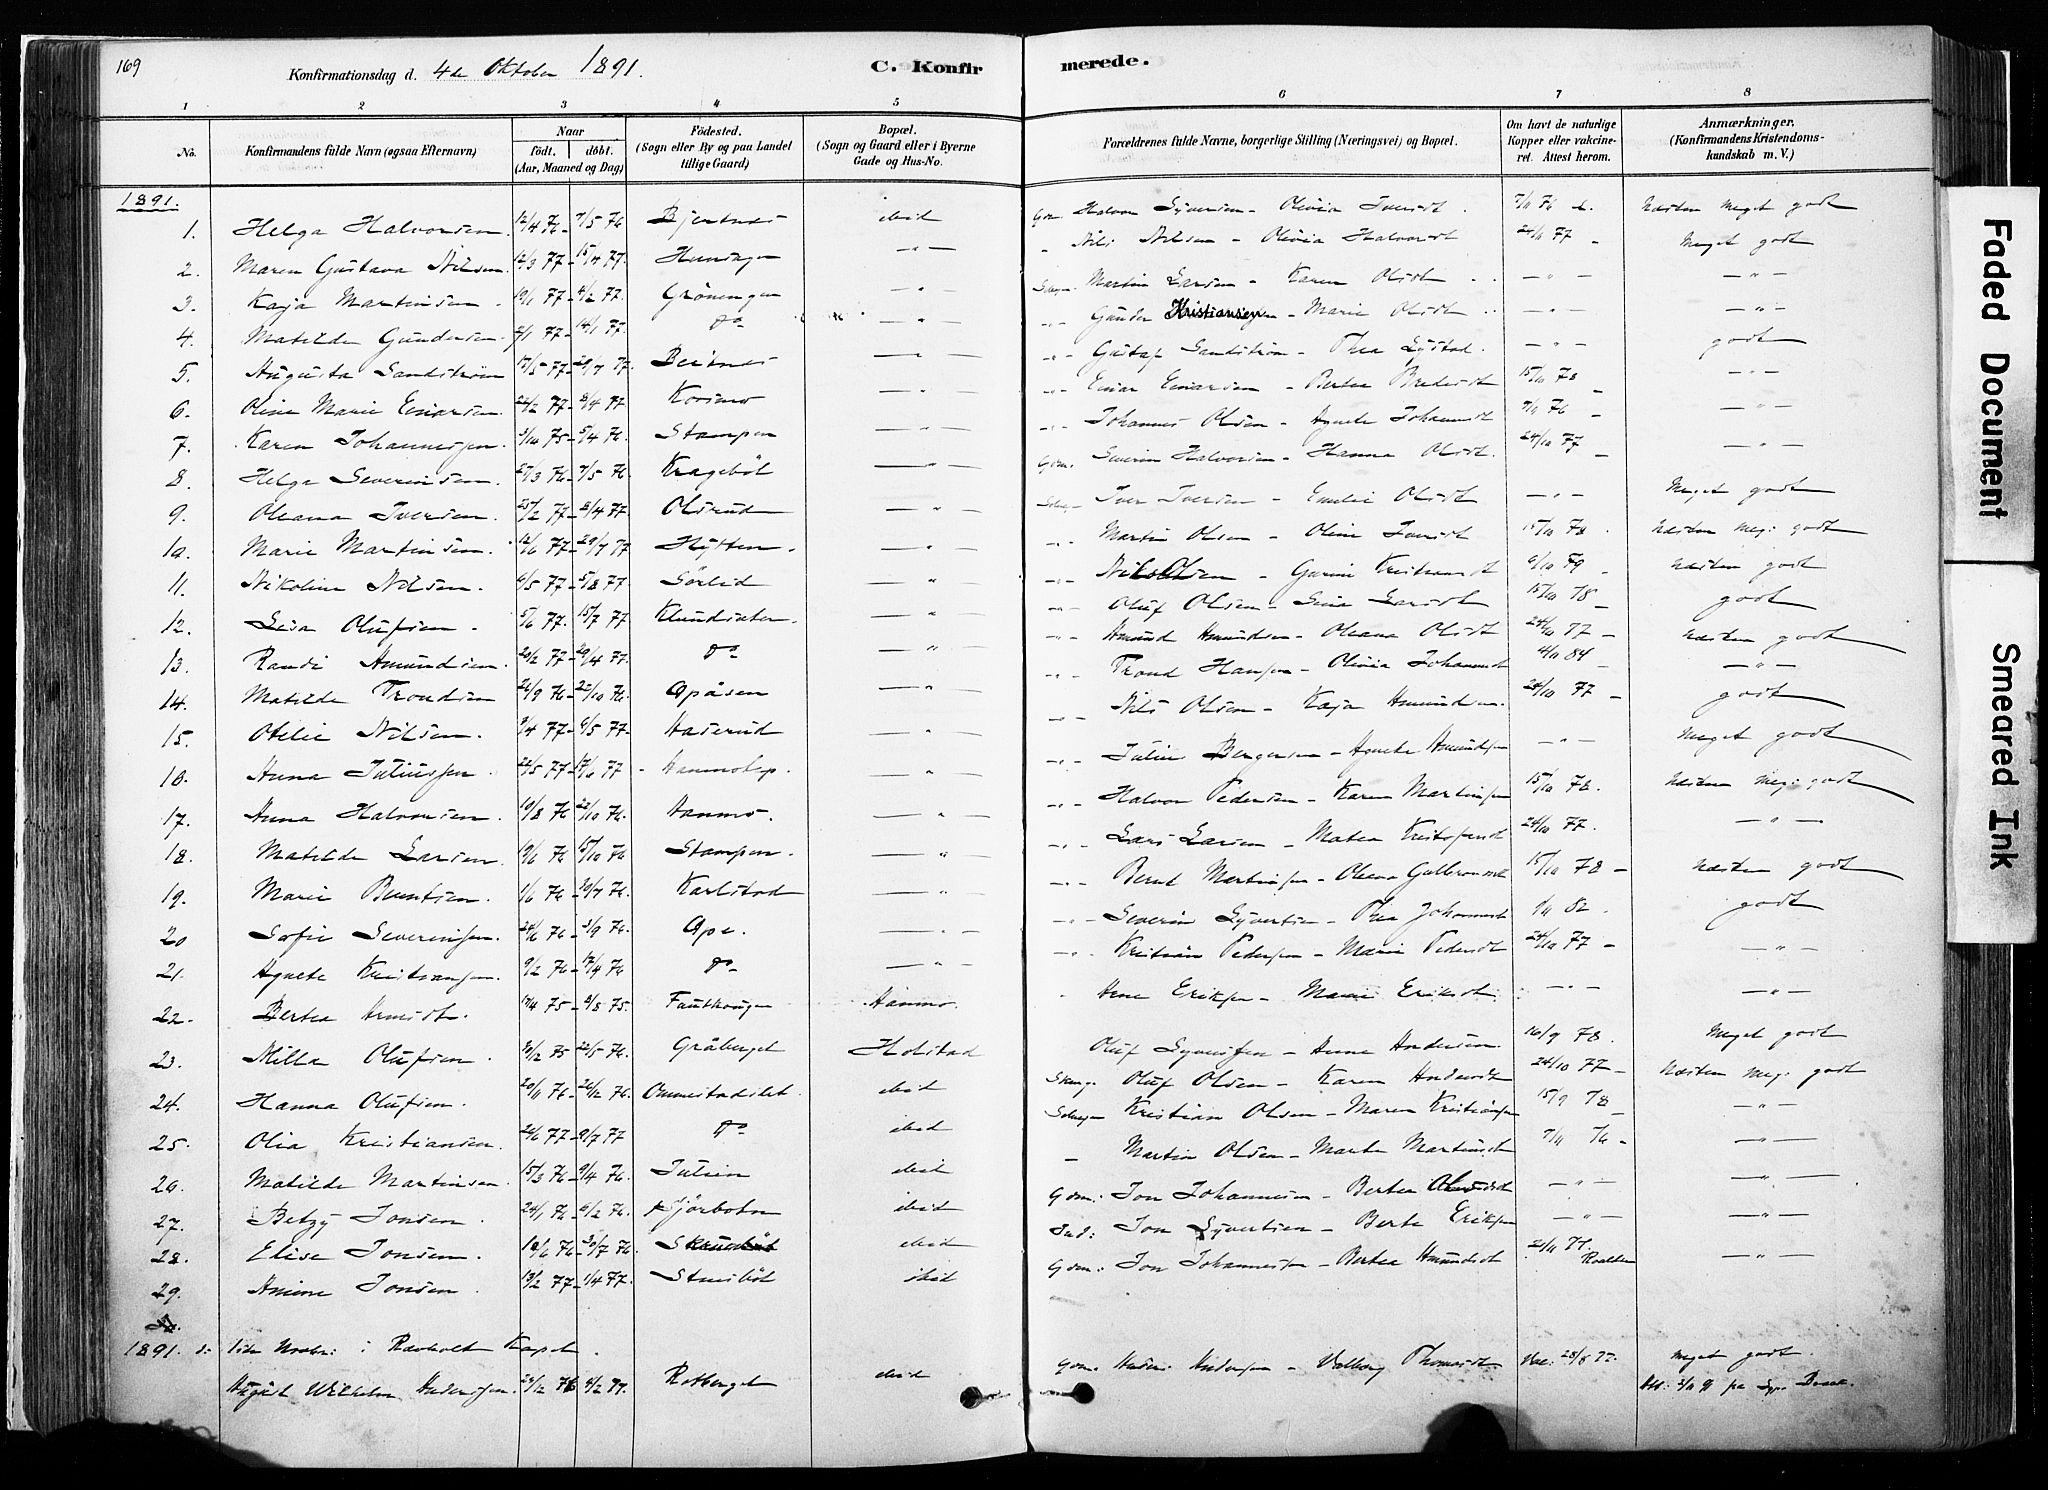 169
Konfirmationsdag d. 4de Oktober 1891.
C. Konfirmerede.
1 2 3 4 5 6 7 8
No.
Konfirmandens fulde Navn (ogsaa Efternavn)
Naar født. døbt. (Aar, Maaned og Dag)
Födested. (Sogn eller By og paa Landet tillige Gaard)
Bopæl. (Sogn og Gaard eller i Byerne Gade og Hus-No.
Forældrenes fulde Navne, borgerlige Stilling (Næringsvei) og Bopæl.
Om havt de naturlige Kopper eller vakcineret. Attest herom.
Anmærkninger. (Konfirmandens Kristendomskundskab m. V.)
1891.
1. Helga Halvorsen. 12/4 76 - 7/5 76 Bjertnes ibid Gdm. Halvor Syversen - Olivia Iversdt. 7/11 76 Næsten meget godt
2. Maren Gustava Nilsen. 12/3 77 - 15/4 77. - " - " Nils Nilsen - Olivia Halvorsdt 24/10 77 - Meget godt
3. Kaja Martinsen 19/1 77 - 4/2 77. Gröningen - " - Martin Larsen - Karen Olsdt - " - - " -
4. Matilde Gundersen 2/1 77 - 14/1 77. Do - " - - " - Gunder Kristiansen - Marie Olsdt - " - - " -
5. Augusta Sandström 17/5 77 - 29/7 77. - " - - " - Gustaf Sandström - Thea Lystad. - " - godt
6. Oline Marie Einarsen. 26/2 77 - 8/4 77 Korsmo - " - - " - Einar Einarsen - Bertea 15/10 78 - - " -
7. Karen Johannessen. 3/10 75 - 5/4 76. Stampen - " - - " - Johannes Olsen - Agnete Johannesdt 7/11 76 - - " -
8. Helga Severinsen. 27/3 76 - 7/5 76 Krageböl - " - Gdm. Severin Halvorsen - Hanna Olsdt. 24/10 77 - - " -
9. Oleana Iversen. 25/2 77 - 8/4 77. Olsrud - " - Iver Iversen - Emilie Olsdt - " - Meget godt
10. Marie Martinsen. 12/6 77 - 29/7 77 Hytten. - " - - " - Martin Olsen - Oline Iversdt 15/10 78. Næsten meg: godt
11. Nikoline Nilsen. 6/5 77 - 5/8 77. Sörlid - " - - " - Nils Olsen - 6/10 79 - Næsten godt
12. Lisa Olufsen. 5/6 77. 15/7 77 - " - - " - Oluf Olsen - Lina Larsdt 15/10 78 - godt
13. Randi Amundsen. 20/2 77 - 29/4 77. Do - " - - " - Amund Amundsen - Oleana Olsdt 24/10 77 - Næsten godt
14. Matilde Trondsen 26/9 76 - 22/10 76. Opåsen - " - - " - Trond Hansen - Olivia Johannesdt 4/11 84 - - " -
15. Otelie Nilsen. 3/4 77 - 6/5 77. Haserud - " - - " - Nils Olsen - Kaja Amundsen. 24/10 77 - godt
16. Anna Juliussen. 22/5 77 - 77 - " - - " - Julius Bergersen - Agnete Amundsen - " - Meget godt
17. Anna Halvorsen. 19/8 76 - 22/10 76. Hanmo. - " - - " - Halvor Pedersen - Karen Martinsen 15/10 78. Næsten meg: godt
18. Matilde Larsen. 19/6 76 - 15/10 76 Stampen. - " - - " - Lars Larsen - Matea Kristofersdt 24/10 77. - " -
19. Marie Berntsen. 1/6 76 - 76. Karlstad - " - - " - Bernt Martinsen - Oleana Gulbransdt 15/10 78 - Næsten godt
20 Sofie Severinsen. 24/6 76 - 3/9 76. Ope. - " - - " - Severin Syvertsen - Thea Johannesdt 1/11 82. godt
21. Agnete Kristiansen. 9/2 76 - 17/4 76 Do - " - - " - Kristian Pedersen - Marie Pedersdt 24/10 77 - - " -
22. Bertea Arnesdt. 17/4 75 - 8/8 75. Fautkougen Hanmo. Arne Eriksen - Marie Eriksdt. - " - - " -
23. Milla Olufsen. 30/12 75 - 22/5 76. Gråberget Holstad Oluf Syversen - Anne Andersen. 16/9 78. Meget godt
24. Hanna Olufsen. 20/11 76 - 26/12 76. Ommestadilet. ibid Oluf Olsen - Karen Andersdt 24/10 77 - Næsten meg: godt
25. Olia Kristiansen. 24/6 77 - 9/7 77 Do ibid Kristian Olsen - Maren Kristiansen 15/9 78 - - " -
26. Matilde Martinsen. 15/3 76 - 9/4 76. Julsen ibid Martin Olsen - Marte Martinsdt 7/11 76 - - " -
27. Betzy Jonsen. 24/1 76 - 6/2 76. ibid Gdm: Jon Johannesen - Bertea - " - - " -
28. Elise Jonsen. 18/6 76 - 30/7 76. ibid Ind: Jon Syvertsen - Berte Eriksen - " - - " -
29. Amine Jonsen. 13/2 77 - 1/4 77. ibid Gdm: Jon Johannesen - Bertea Amundsdt 21/11 77. - " -
1891. i Ravholt Kapel.
August Wilhelm Anderssen. 23/12 76 4/2 77. Rotberget ibid Gdm. Anders Andersen - Valborg Thomasdt. Vac: 28/8 77. Meget godt.
Faded Document
Smeared Ink